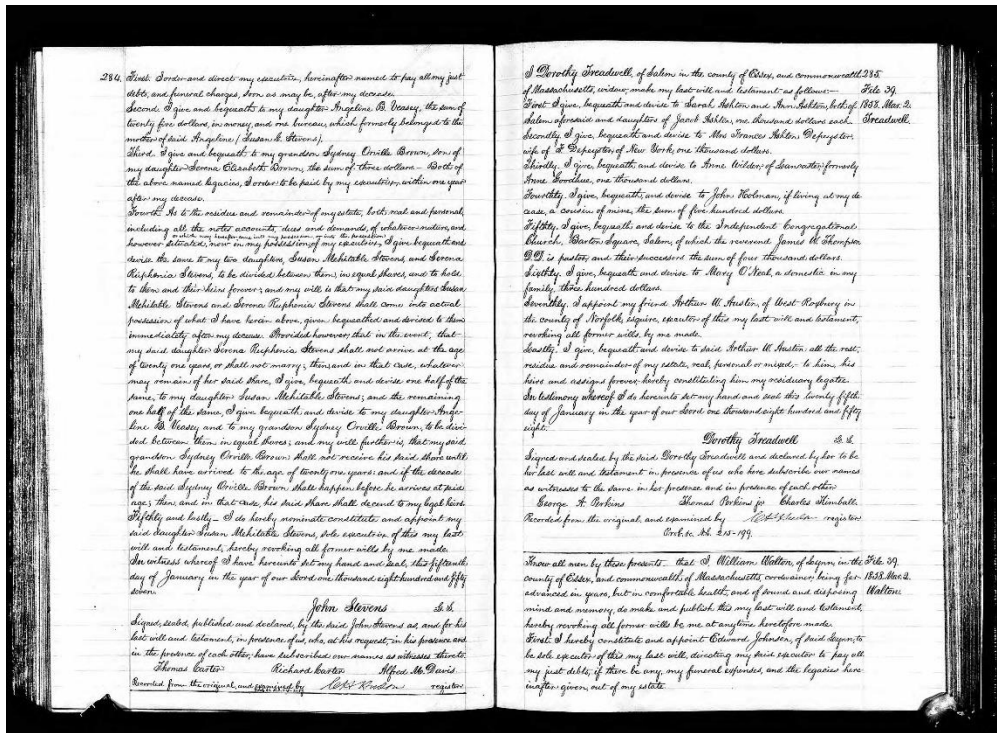 284.
First. I order and direct my executrix, hereinafter named to pay all my just
debts, and funeral charges, soon as may be, after my decease.
Second. I give and bequeath to my daughter Angeline B. Veasey, the sum of
twenty five dollars, in money, and one bureau, which formerly belonged to the
mother of said Angeline (Susan G. Stevens).
Third. I give and bequeath to my grandson Sydney Orville Brown, son of
my daughter Serena Elizabeth Brown, the sum of three dollars. Both of
the above named legacies, I order to be paid by my executrix, within one year
after my decease.
Fourth. As to the residue and remainder of my estate, both real and personal,
including all the notes accounts, dues and demands, of whatever nature, and
or which may hereafter come into my possession or into the possession
however situated, now in my possession of my executrix, I give bequeath and
devise the same to my two daughters, Susan Mehitable Stevens, and Serena
Ruphenia Stevens, to be divided between them, in equal shares, and to hold
to them and their heirs forever; and my will is that my said daughters Susan
Mehitable Stevens and Serena Ruphenia Stevens shall come into actual
possession of what I have herein above, given, bequeathed and devised to them
immediately after my decease. Provided however, that in the event, that
my said daughter Serena Ruphenia Stevens shall not arrive at the age
of twenty one years, or shall not marry; then, and in that case, whatever
may remain of her said share, I give, bequeath and devise one half of the
same, to my daughter Susan Mehitable Stevens; and the remaining
one half of the same, I give bequeath and devise to my daughter Ange-
line B. Veasey and to my grandson Sydney Orville Brown, to be divi-
ded between them in equal shares; and my will further is, that my said
grandson Sydney Orville Brown shall not receive his said share until
he shall have arrived to the age of twenty one years: and if the decease
of the said Sydney Orville Brown shall happen before he arrives at said
age; then, and in that case, his said share shall decend to my legal heirs.
Fifthly and lastly— I do hereby nominate constitute and appoint my
said daughter Susan Mehitable Stevens, sole executrix of this my last
will and testament, hereby revoking all former wills by me made.
In witness whereof I have hereunto set my hand and seal, this fifteenth
day of January in the year of our Lord one thousand eight hundred and fifty
seven.
John Stevens L.S.
Signed, sealed, published and declared, by the said John Stevens as, and for his
last will and testament, in presence of us, who, at his request, in his presence and
in the presence of each other, have subscribed our names as witnesses thereto.
Thomas Carter Richard Carter Alfred M. Davis.
Recorded from the original, and examined by register
I Dorothy Treadwell, of Salem in the county of Essex, and commonwealth 285.
of Massachusetts, widow, make my last will and testament as follows:— File 39.
First I give, bequeath and devise to Sarah Ashton and Ann Ashton, both of 1858. Mar. 2.
Salem aforesaid and daughters of Jacob Ashton, one thousand dollars each Treadwell.
Secondly I give, bequeath and devise to Mrs Frances Ashton Depeyster
wife of F. Depeyster, of New York, one thousand dollars.
Thirdly. I give, bequeath, and devise to Anne Wilder, of Lancaster, formerly
Anne Goodhue, one thousand dollars.
Fourthly. I give, bequeath, and devise to John Holman, if living at my de
cease, a cousin of mine, the sum of five hundred dollars
Fifthly. I give, bequeath and devise to the Independent Congregational
Church, Barton Square, Salem, of which the reverend James W. Thompson
D.D. is pastor, and their successors the sum of four thousand dollars.
Sixthly. I give, bequeath and devise to Mary O'Neal, a domestic in my
family, three hundred dollars.
Seventhly. I appoint my friend Arthur W. Austin, of West Roxbury in
the county of Norfolk, esquire, executor of this my last will and testament,
revoking all former wills, by me made.
Lastly. I give, bequeath and devise to said Arthur W. Austin all the rest,
residue and remainder of my estate, real, personal or mixed,- to him, his
heirs and assigns forever, hereby constituting him my residuary legatee.
In testimony whereof I do hereunto set my hand and seal this twenty fifth
day of January in the year of our Lord one thousand eight hundred and fifty
eight.
Dorothy Treadwell L.S.
Signed and sealed by the said Dorothy Treadwell and declared by her to be
her last will and testament in presence of us who have subscribe our names
as witnesses to the same in her presence and in presence of each other
George A. Perkins Thomas Perkins jr Charles Kimball.
Recorded from the original, and examined by register
Prob. &c. No. 215-199.
Know all men by these presents- that I, William Walton, of Lynn, in the File 39.
county of Essex, and commonwealth of Massachusetts, cordwainer, being far 1858. Mar. 2.
advanced in years, but in comfortable health, and of sound and disposing Walton.
mind and memory, do make and publish this my last will and testament,
hereby revoking all former wills be me at anytime heretofore made.
First. I hereby constitute and appoint Edward Johnson, of said Lynn, to
be sole executor of this my last will, directing my said executor to pay all
my just debts, if there be any, my funeral expenses, and the legacies here
inafter given, out of my estate